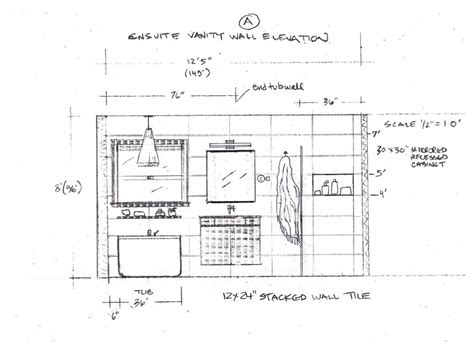 A
ENSUITE VANITY WALL ELEVATION
12'5"
(149")
end tub wall
76"
36"
SCALE 1/2" = 1'0"
7'
30 x 30" MIRRORED
RECESSED
CABINET
5'
8'(96")
4'
TUB
36"
6"
12x24" STACKED WALL TILE